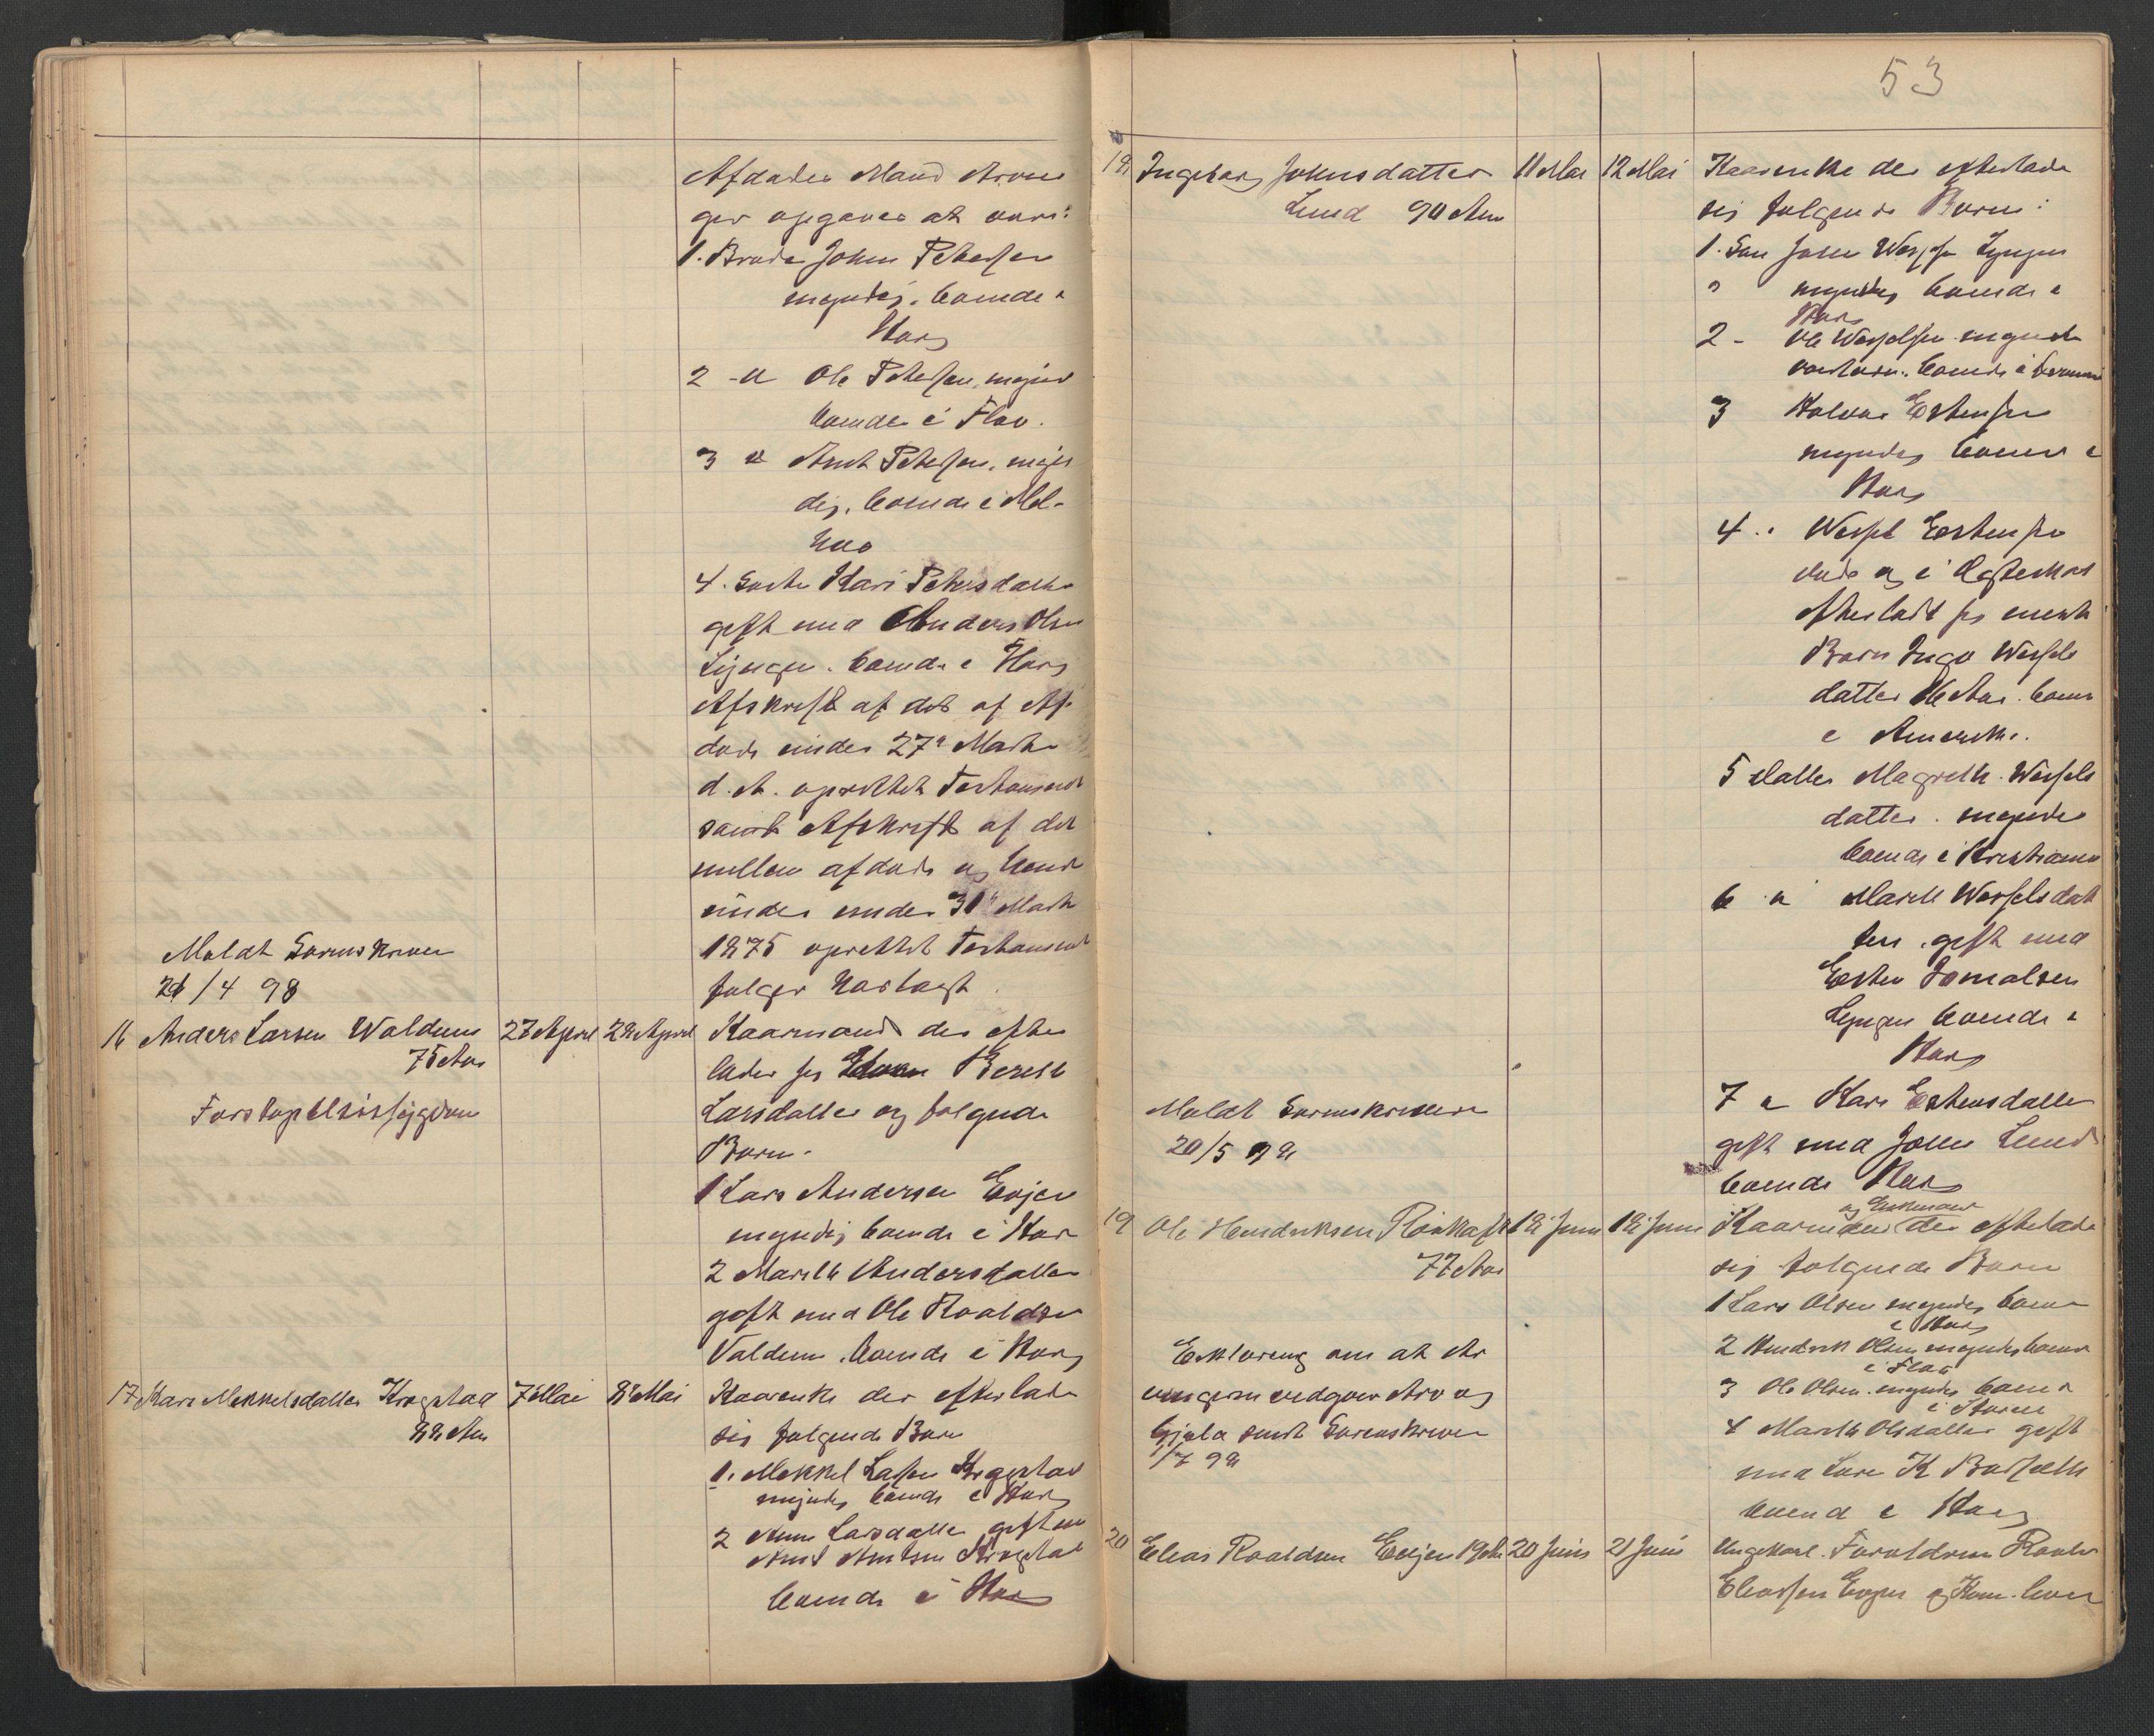 Afdødes Mand Arvin
ger opgaves at være:
1. Broder John Petersen
myndig, boende i
Horg
2 -„ Ole Petersen, mynd
boende i Flaa.
3 „ Arnt Petersen, myn
dig, boende i Mel-
huus
4. Søster Kari Petersdatter
gift med Anders Olsen
Lyngen. boende i Horg
Afskrift af det af Af
døde under 27de Marts
d. A. oprettet Testament
samt Afskrift af det
mellem afdøde og hend
under 31 Marts
1875 oprettet Testament
følger vedlagt.
Meldt Sorenskriver
21/4 98
16 Anders Larsen Waldum
75 Aar
27 April 28 April
Kaarmand der efter
lader sig Beret
Larsdatter og følgende
Børn.
1 Lars Andersen Evjen
myndig boende i Horg
2 Marith Andersdatter
gift med Ole Roaldsen
Valdum. boende i Horg
17 Kari Mekkelsdatter Krogstad
88 Aar
7 Mai 8 Mai
Kaarenke der efterlader
sig følgende Børn
1. Mekkel Larsen Krogstad
myndig boende i Horg
2 Ane Larsdatter gift m
Arnt Arntsen Krogstad
boende i Horg
53
18 Ingeborg Johnsdatter
Lund 90 Aar
11 Mai 12 Mai
Kaarenke der efterlader
sig følgende Børn:
1. Søn John Lyngen
myndig boende i
Horg
2 - Ole Wesselsen mynd
boende i
3 Halvor Estensen
myndig boende i
Horg
4 „ Wessel Estensen
døde og i
efterladt sig eneste
Barn Inga Wessels
datter 16 Aar. boende
i Amerika.
5 Datter Magreth Wessels
datter. myndig
boende i Kristiania
6 „ Marit Wesselsdat
ter, gift med
Esten
Lyngen boende i
Horg
7 „ Kari Estensdatter
gift med John Lund
boende Horg
Meldt Sorenskriveren
20/5 98
19 Ole Hendriksen
77 Aar
18 Juni 18 Juni
og Enkemand
Kaarmand der efterlader
sig følgende Børn
1 Lars Olsen myndig boende
i Horg
2 Hendrik Olsen myndig boende
i Flaa
3 Ole Olsen. myndig boende
i Støren
4 Marith Olsdatter gift
med Lars K
boende i Horg
Erklæring om at Ar
vingerne vedgaar Arv og
Gjæld sendt Sorenskriver
1/7 98
20 Elias Roaldsen Evjen 19 Aar
20 Juni 21 Juni
Ungkarl. Forældrene Roald
Eliassen Evjen og Kone lever